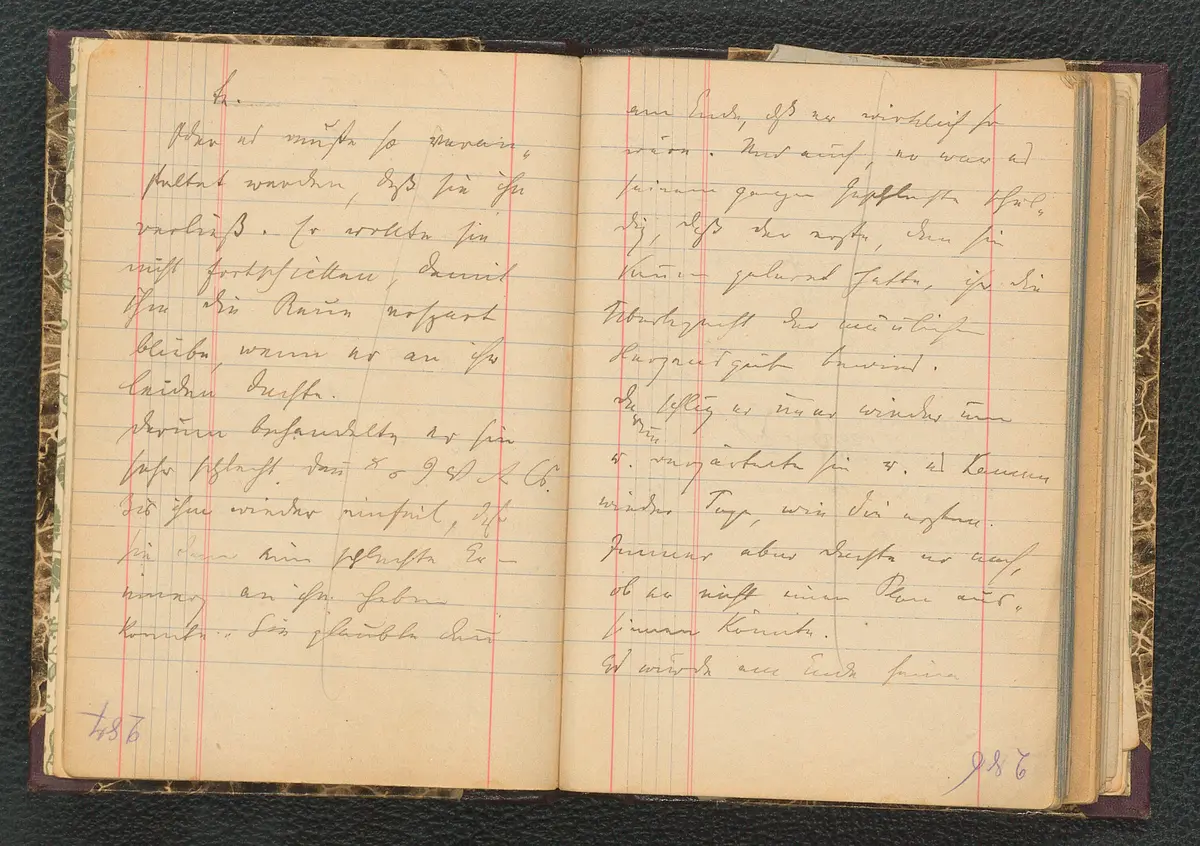 te.
Oder es müßte so veran„
staltet werden, daß sie ihn
verließ. Er wollte sie
nicht fortschicken, damit
ihm die Reue erspart
bliebe, wenn er an ihr
Leiden dachte.
Darum behandelte er sie
sehr schlecht.
Bis ihm wieder einfiel, daß
sie dann eine schlechte Er-
innerg an ihn haben
könnte. Sie glaubte dann
am Ende, daß er wirklich so
wäre. Und auch, er war es
seinem ganzen Geschlechte schul„
dig, daß der erste, den sie
kennen gelernt hatte, ihr die
Überzeugung der männlichen
Herzensgüte bewies.
Da schlug er immer wieder um
u. verzärtelte sie u. es kamen
wieder Tage, wie die ersten.
Immer aber dachte er nach,
ob er nicht einen Plan aus„
sinnen könnte.
Es würde am Ende seine
287
286